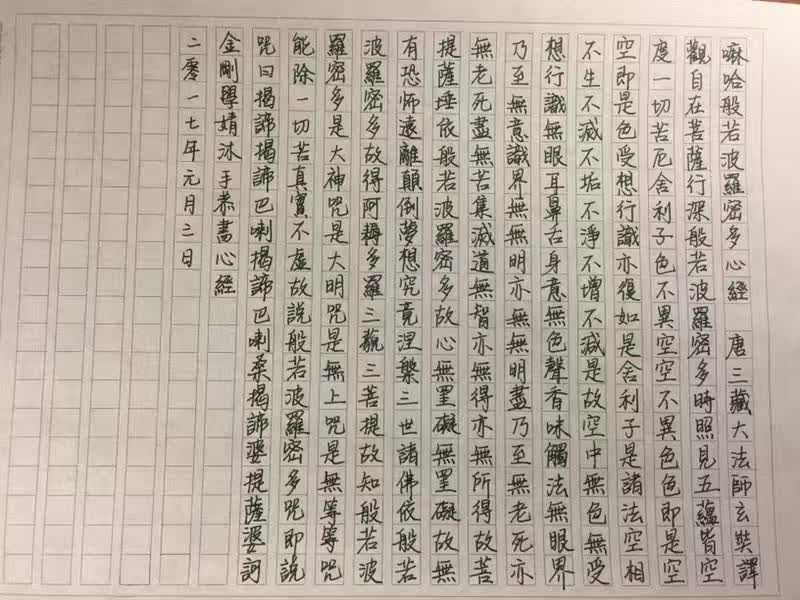 嘛哈般若波羅密多心經　唐三藏大法師玄奘譯
觀自在菩薩行深般若波羅密多時照見五蘊皆空
度一切苦厄舍利子色不異空空不異色色即是空
空即是色受想行識亦復如是舍利子是諸法空相
不生不滅不垢不淨不增不減是故空中無色無受
想行識無眼耳鼻舌身意無色聲香味觸法無眼界
乃至無意識界無無明亦無無明盡乃至無老死亦
無老死盡無苦集滅道無智亦無得亦無所得故菩
提薩埵依般若波羅密多故心無罣礙無罣礙故無
有恐怖遠離顛倒夢想究竟涅槃三世諸佛依般若
波羅密多故得阿耨多羅三藐三菩提故知般若波
羅密多是大神咒是大明咒是無上咒是無等等咒
能除一切苦真實不虛故說般若波羅密多咒即說
咒曰揭諦揭諦巴喇揭諦巴喇桑揭諦婆提薩婆訶
金剛學婧沐手恭書心經
二零一七年元月三日